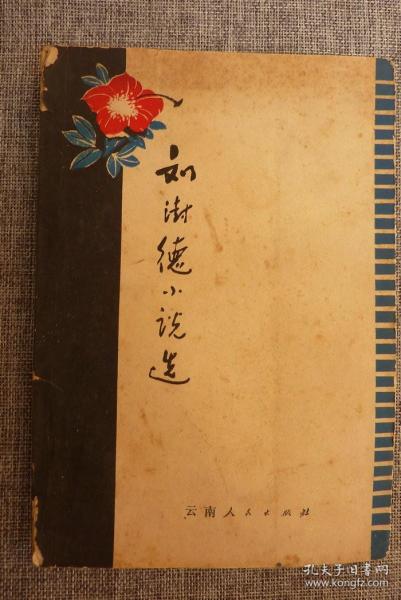 刘澍德小说选
云南人民出版社
孔夫子旧书网
www.kongfz.com